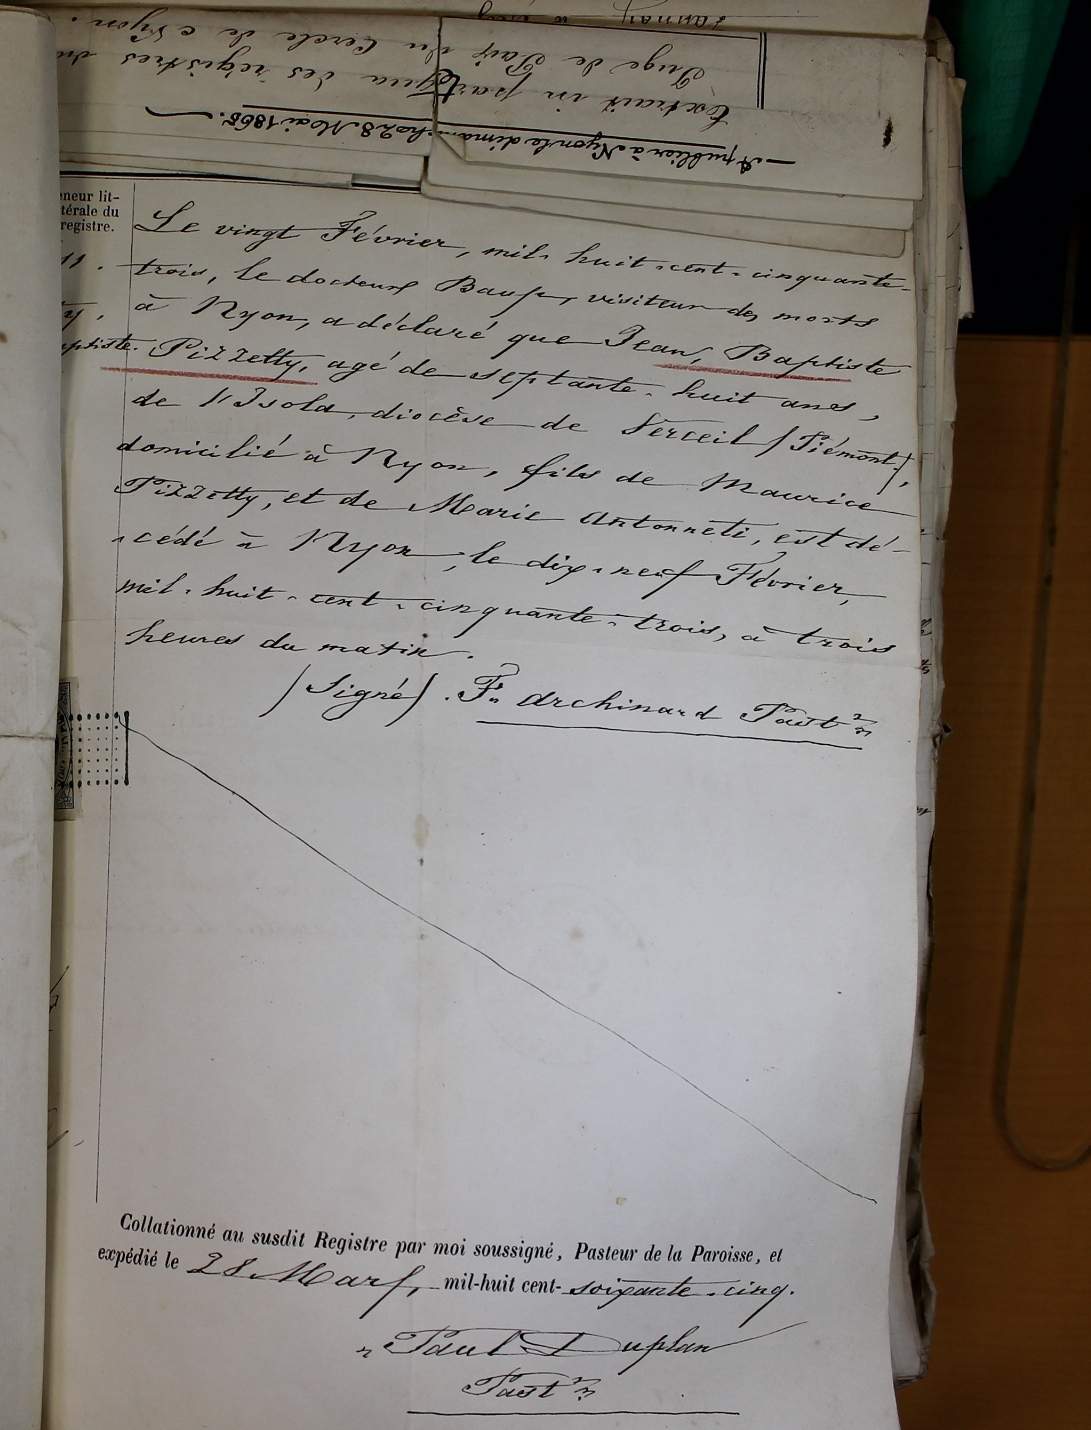 Juge de Paix du Cercle de Nyon.
Extrait in parte qua des registres du
A publier à Nyon le dimanche 28 Mai 1865.
eneur lit-
térale du
registre.
Le vingt Février, mil-huit-cent-cinquante-
trois, le docteur Baup, visiteur des morts
à Nyon, a déclaré que Jean, Baptiste
ptiste. Pizzetty, agé de septante-huit anes,
de l'Isola, diocèse de Verceil (Piémont),
domicilié à Nyon, fils de Maurice
Pizzetty, et de Marie Antonneti, est dé-
cédé à Nyon, le dix-neuf Février,
mil-huit-cent-cinquante-trois, à trois
heures du matin.
(Signé). Fs. Archinard Past.r
Collationné au susdit Registre par moi soussigné, Pasteur de la Paroisse, et
expédié le 28 Mars, mil-huit cent-soixante-cinq.
Paul Duplan
Past.r